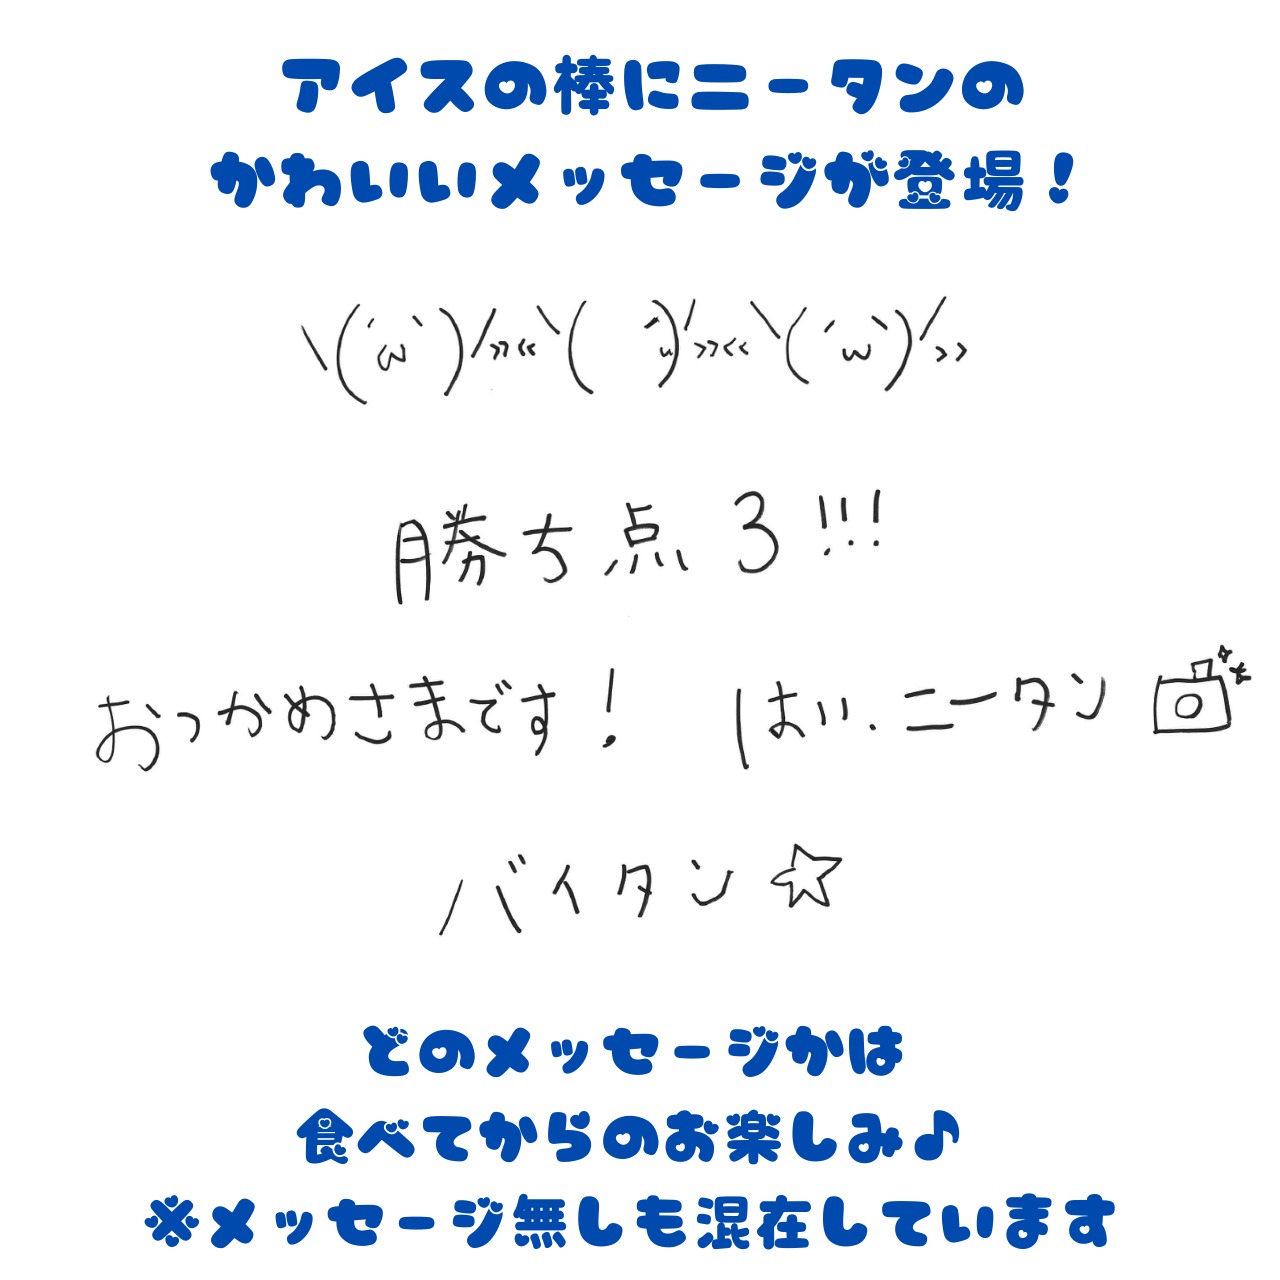 アイスの棒にニータンの
かわいいメッセージが登場！
\(´ω`)/>><<\(　´ω)/>><<\(´ω`)/>>
勝ち点3!!!
おっかめさまです！　はい、ニータン
バイタン☆
どのメッセージかは
食べてからのお楽しみ♪
※メッセージ無しも混在しています